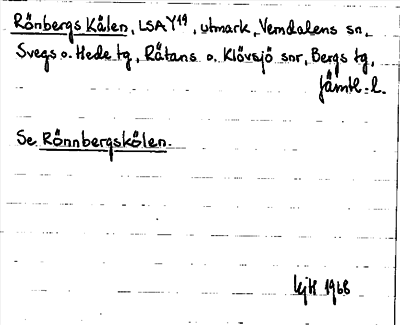 Rönbergs Kålen, LSA Y19, utmark, Vemdalens sn,
Svegs o. Hede tg, Rätans o. Klövsjö snr, Bergs tg,
Jämtl. l.
Se Rönnbergskölen.
1968